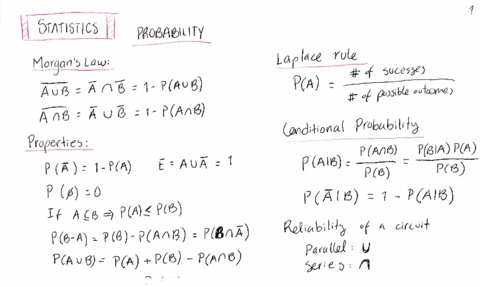 1
STATISTICS PROBABILITY
Morgan's Law:
A̅∪̅B̅ = A̅ ∩ B̅ = 1 - P(A∪B)
A̅∩̅B̅ = A̅ ∪ B̅ = 1 - P(A∩B)
Properties:
P(A̅) = 1 - P(A) E̅ = A∪A̅ = 1
P(ø) = 0
If A⊆B ⇒ P(A) ≤ P(B)
P(B-A) = P(B) - P(A∩B) = P(B∩A̅)
P(A∪B) = P(A) + P(B) - P(A∩B)
Laplace rule
P(A) = # of sucesses / # of possible outcomes
Conditional Probability
P(A|B) = P(A∩B) / P(B) = P(B|A) P(A) / P(B)
P(A̅|B) = 1 - P(A|B)
Reliability of a circuit
Parallel: ∪
Series: ∩